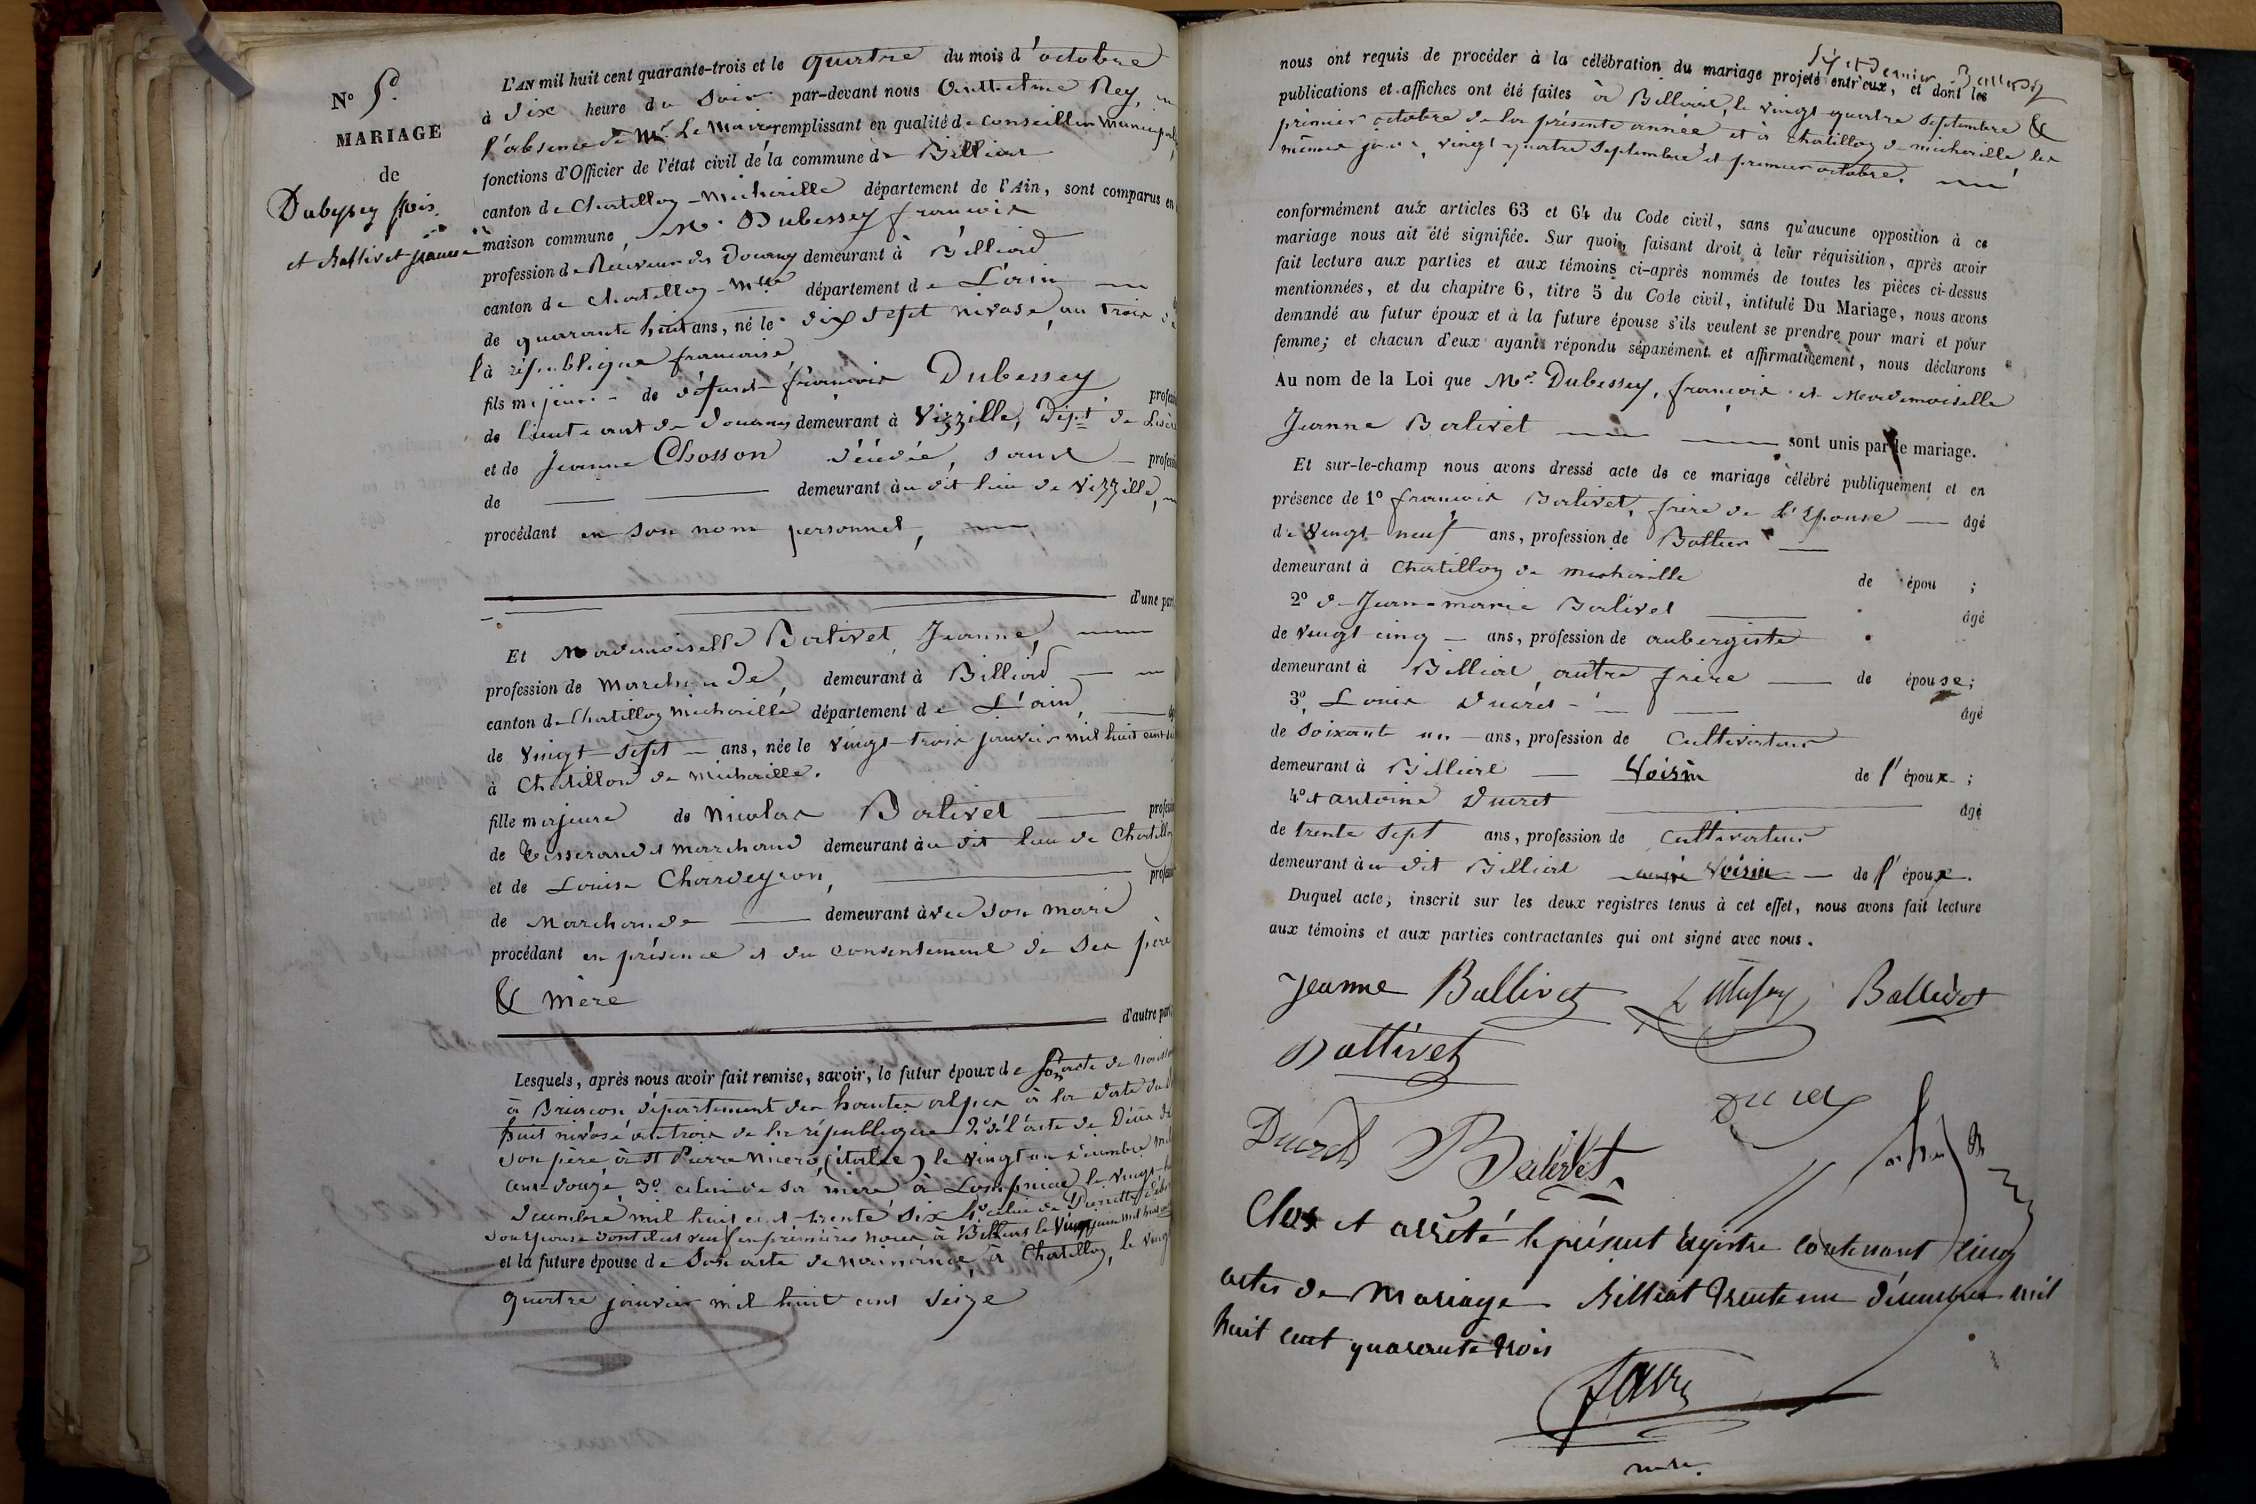 N° 5.
MARIAGE
de
Dubessey fçois
et Ballivet jeanne
L'AN mil huit cent quarante-trois et le quatre du mois d'octobre
à dix heure du soir par-devant nous Anthelme Rey, en
l'absence de Mr. Le Maire remplissant en qualité de conseiller municipal
fonctions d'Officier de l'état civil de la commune de Billiat
canton de Chatillon-michaille département de l'Ain, sont comparus en
maison commune, Mr. Dubessey françois
profession de Receveur des Douanes demeurant à Billiad
canton de Chatillon-Mlle département de L'ain
de quarante huit ans, né le dix sept nivose, an trois de
la république francaise
fils majeur de défunt françois Dubessey profess
de lieutenant de douanes demeurant à Vizzille, Dépt de Lisère
et de Jeanne Chosson décédée, sans profess
de demeurant au dit lieu de Vizzille,
procédant en son nom personnel,
d'une part
Et Mademoiselle Balivet Jeanne,
profession de Marchande, demeurant à Billiad
canton de Chatillon michaille département de L'ain,
de vingt sept ans, née le vingt trois janvier mil huit cent
à Chatillon de michaille.
fille majeure de Nicolas Balivet profess
de Tisserand et marchand demeurant au dit lieu de Chatillon
et de Louise Charveyron, profess
de Marchande demeurant avec son mari
procédant en présence et du consentement de ses père
& mère
d'autre part
Lesquels, après nous avoir fait remise, savoir, le futur époux de son acte de
à Briancon département des hautes alpes à la date du
huit nivose an trois de la république 2° de l'acte de Décès de
son père, à St Pierre (italie) le vingt un décembre mil
cent douze, 3° celui de sa mère à le vingt
décembre mil huit cent trente six 4° celui de Pierrette
son épouse dont il est veuf en premières noces à le vingt juin mil huit
et la future épouse de son acte de naissance, à Chatillon, le vingt
quatre janvier mil huit cent seize
nous ont requis de procéder à la célébration du mariage projeté entr'eux, et dont les
publications et affiches ont été faites à Billiat, le vingt quatre septembre &
premier octobre de la présente année et à Chatillon de michaille les
mêmes jours, vingt quatre septembre et premier octobre.
conformément aux articles 63 et 64 du Code civil, sans qu'aucune opposition à ce
mariage nous ait été signifiée. Sur quoi, faisant droit à leur réquisition, après avoir
fait lecture aux parties et aux témoins ci-après nommés de toutes les pièces ci-dessus
mentionnées, et du chapitre 6, titre 5 du Code civil, intitulé Du Mariage, nous avons
demandé au futur époux et à la future épouse s'ils veulent se prendre pour mari et pour
femme; et chacun d'eux ayant répondu séparément et affirmativement, nous déclarons
Au nom de la Loi que Mr. Dubessey, françois et Mademoiselle
Jeanne Balivet sont unis par le mariage.
Et sur-le-champ nous avons dressé acte de ce mariage célébré publiquement et en
présence de 1° françois Balivet, frère de L'Epouse âgé
de vingt neuf ans, profession de Bottier
demeurant à Chatillon de michaille de épou ;
2° de Jean-marie Balivet âgé
de vingt cinq ans, profession de aubergiste
demeurant à Billiat, autre frère de épouse;
3° Louis Ducret âgé
de soixante un ans, profession de Cultivateur
demeurant à Billiat Voisin de l'époux ;
4° et antoine Ducret âgé
de trente sept ans, profession de cultivateur
demeurant au dit Billiat aussi Voisin de l'époux.
Duquel acte, inscrit sur les deux registres tenus à cet effet, nous avons fait lecture
aux témoins et aux parties contractantes qui ont signé avec nous.
Jeanne Ballivet Ballivet
Ballivet
Ducret
Ducret Balivet
Clos et arrêté le présent registre contenant cinq
actes de Mariage. Billiat trente un décembre mil
huit cent quarante trois
Favre